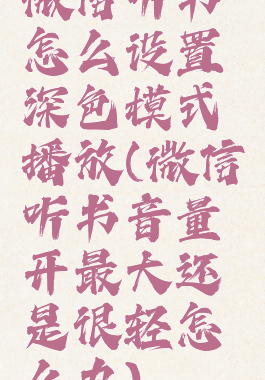 微信听书
怎么设置
深色模式
播放(微信
听书音量
开最大还
是很轻怎
么办)